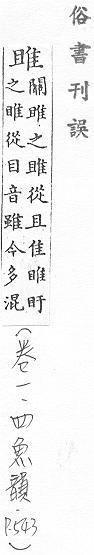 俗書刊誤
雎關雎之雎從且佳睢盱
之睢從目音雖今多混
(卷一、四魚韻.P.543)